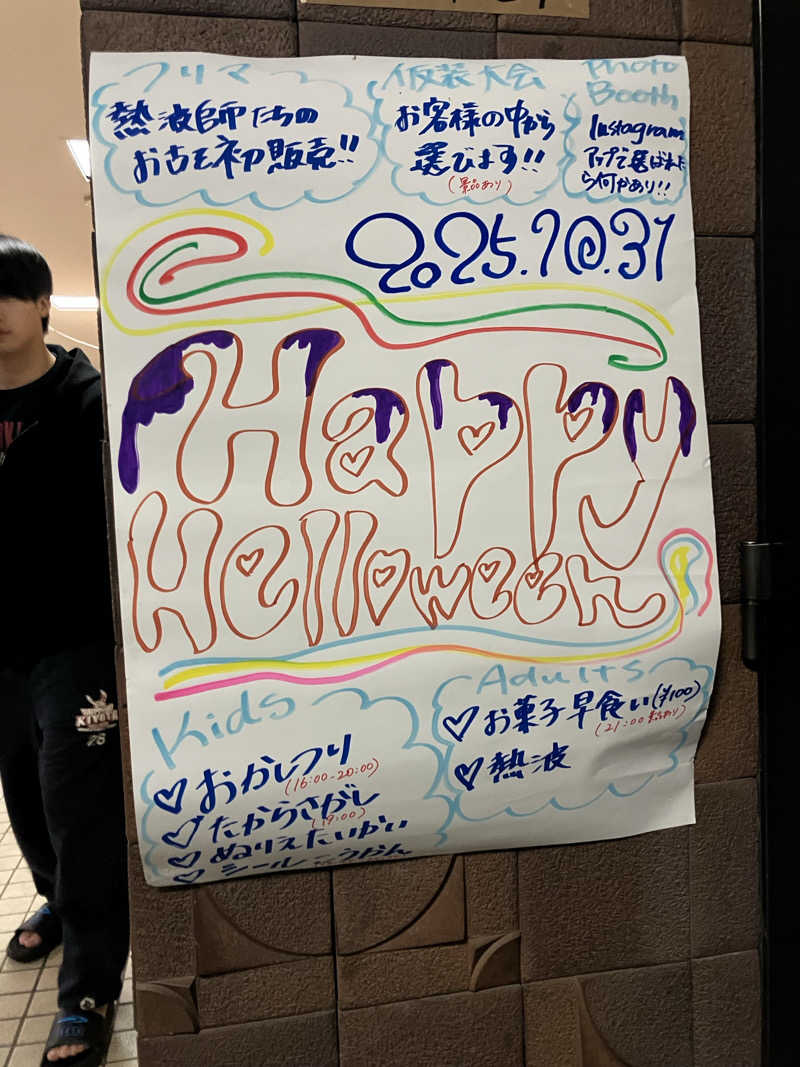 フリマ
熱波師たちの
お古を初販売!!
仮装大会
お客様の中から
選びます!!
(景品あり)
Photo
Booth
Instagram
アップで選ばれた
ら何かあり!!
2025.10.31
Happy
Helloween
Kids
♡おかしつり
(16:00-20:00)
♡たからさがし
(19:00)
♡ぬりえたいかい
♡シールこうかん
Adults
♡お菓子早食い(¥100)
(21:00景品あり)
♡熱波
KIYOTA